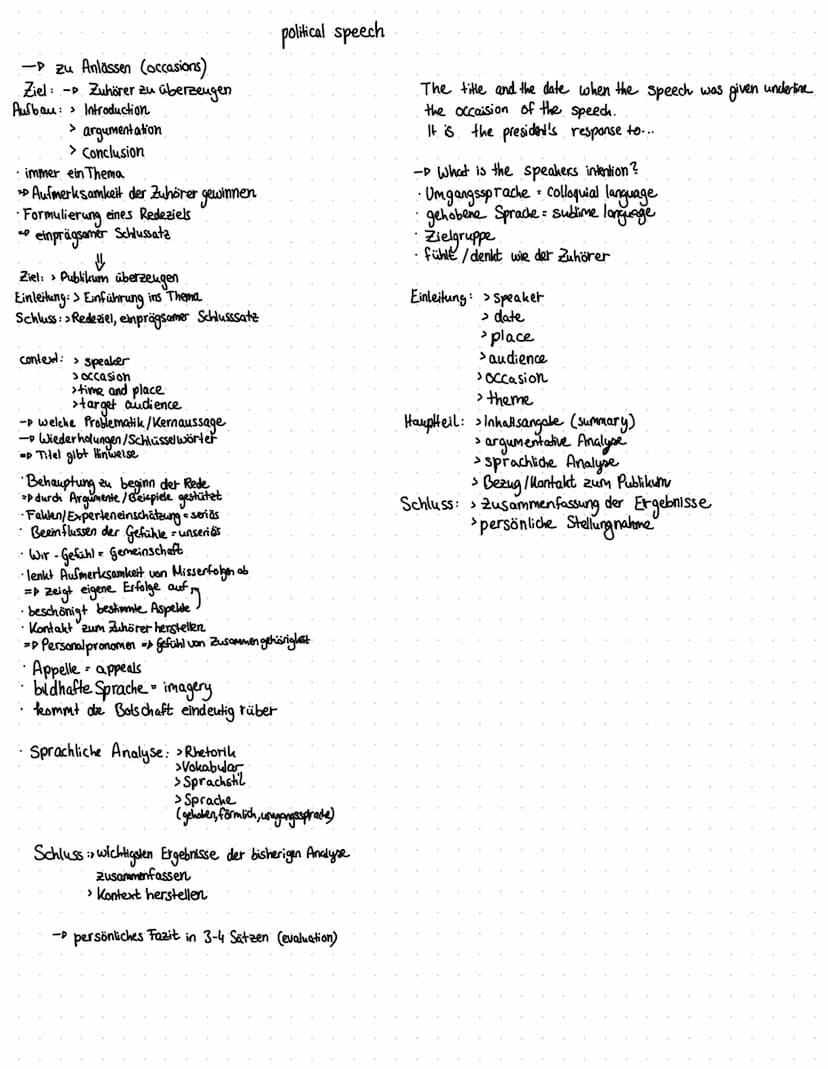 political speech
→ zu Anlässen (occasions)
Ziel: → Zuhörer zu überzeugen
Aufbau: > Introduction
> argumentation
> Conclusion
· immer ein Thema
⇒ Aufmerksamkeit der Zuhörer gewinnen
· Formulierung eines Redeziels
⇒ einprägsamer Schlussatz
⇓
Ziel: > Publikum überzeugen
Einleitung: > Einführung ins Thema
Schluss: > Redeziel, einprägsamer Schlusssatz
context: > speaker
> occasion
> time and place
> target audience
→ welche Problematik/Kernaussage
→ Wiederholungen/Schlüsselwörter
⇒ Titel gibt Hinweise
· Behauptung zu beginn der Rede
⇒ durch Argumente/Beispiele gestützt
· Fakten/Experteneinschätzung = seriös
· Beeinflussen der Gefühle = unseriös
· Wir-Gefühl = Gemeinschaft
· lenkt Aufmerksamkeit von Misserfolgen ab
⇒ zeigt eigene Erfolge auf
· beschönigt bestimmte Aspekte
· Kontakt zum Zuhörer herstellen
⇒ Personalpronomen ⇒ Gefühl von Zusammengehörigkeit
· Appelle = appeals
· bildhafte Sprache = imagery
· kommt die Botschaft eindeutig rüber
· Sprachliche Analyse: > Rhetorik
> Vokabular
> Sprachstil
> Sprache
(gehoben, förmlich, umgangssprache)
Schluss: > wichtigsten Ergebnisse der bisherigen Analyse
zusammenfassen
> Kontext herstellen
→ persönliches Fazit in 3-4 Sätzen (evaluation)
The title and the date when the speech was given underline
the occaision of the speech.
It is the president's response to...
→ What is the speakers intention?
· Umgangssprache = Colloquial language
· gehobene Sprache = sublime language
· Zielgruppe
· fühlt/denkt wie der Zuhörer
Einleitung: > speaker
> date
> place
> audience
> occasion
> theme
Hauptteil: > Inhaltsangabe (summary)
> argumentative Analyse
> sprachliche Analyse
> Bezug/Kontakt zum Publikum
Schluss: > Zusammenfassung der Ergebnisse
> persönliche Stellungnahme